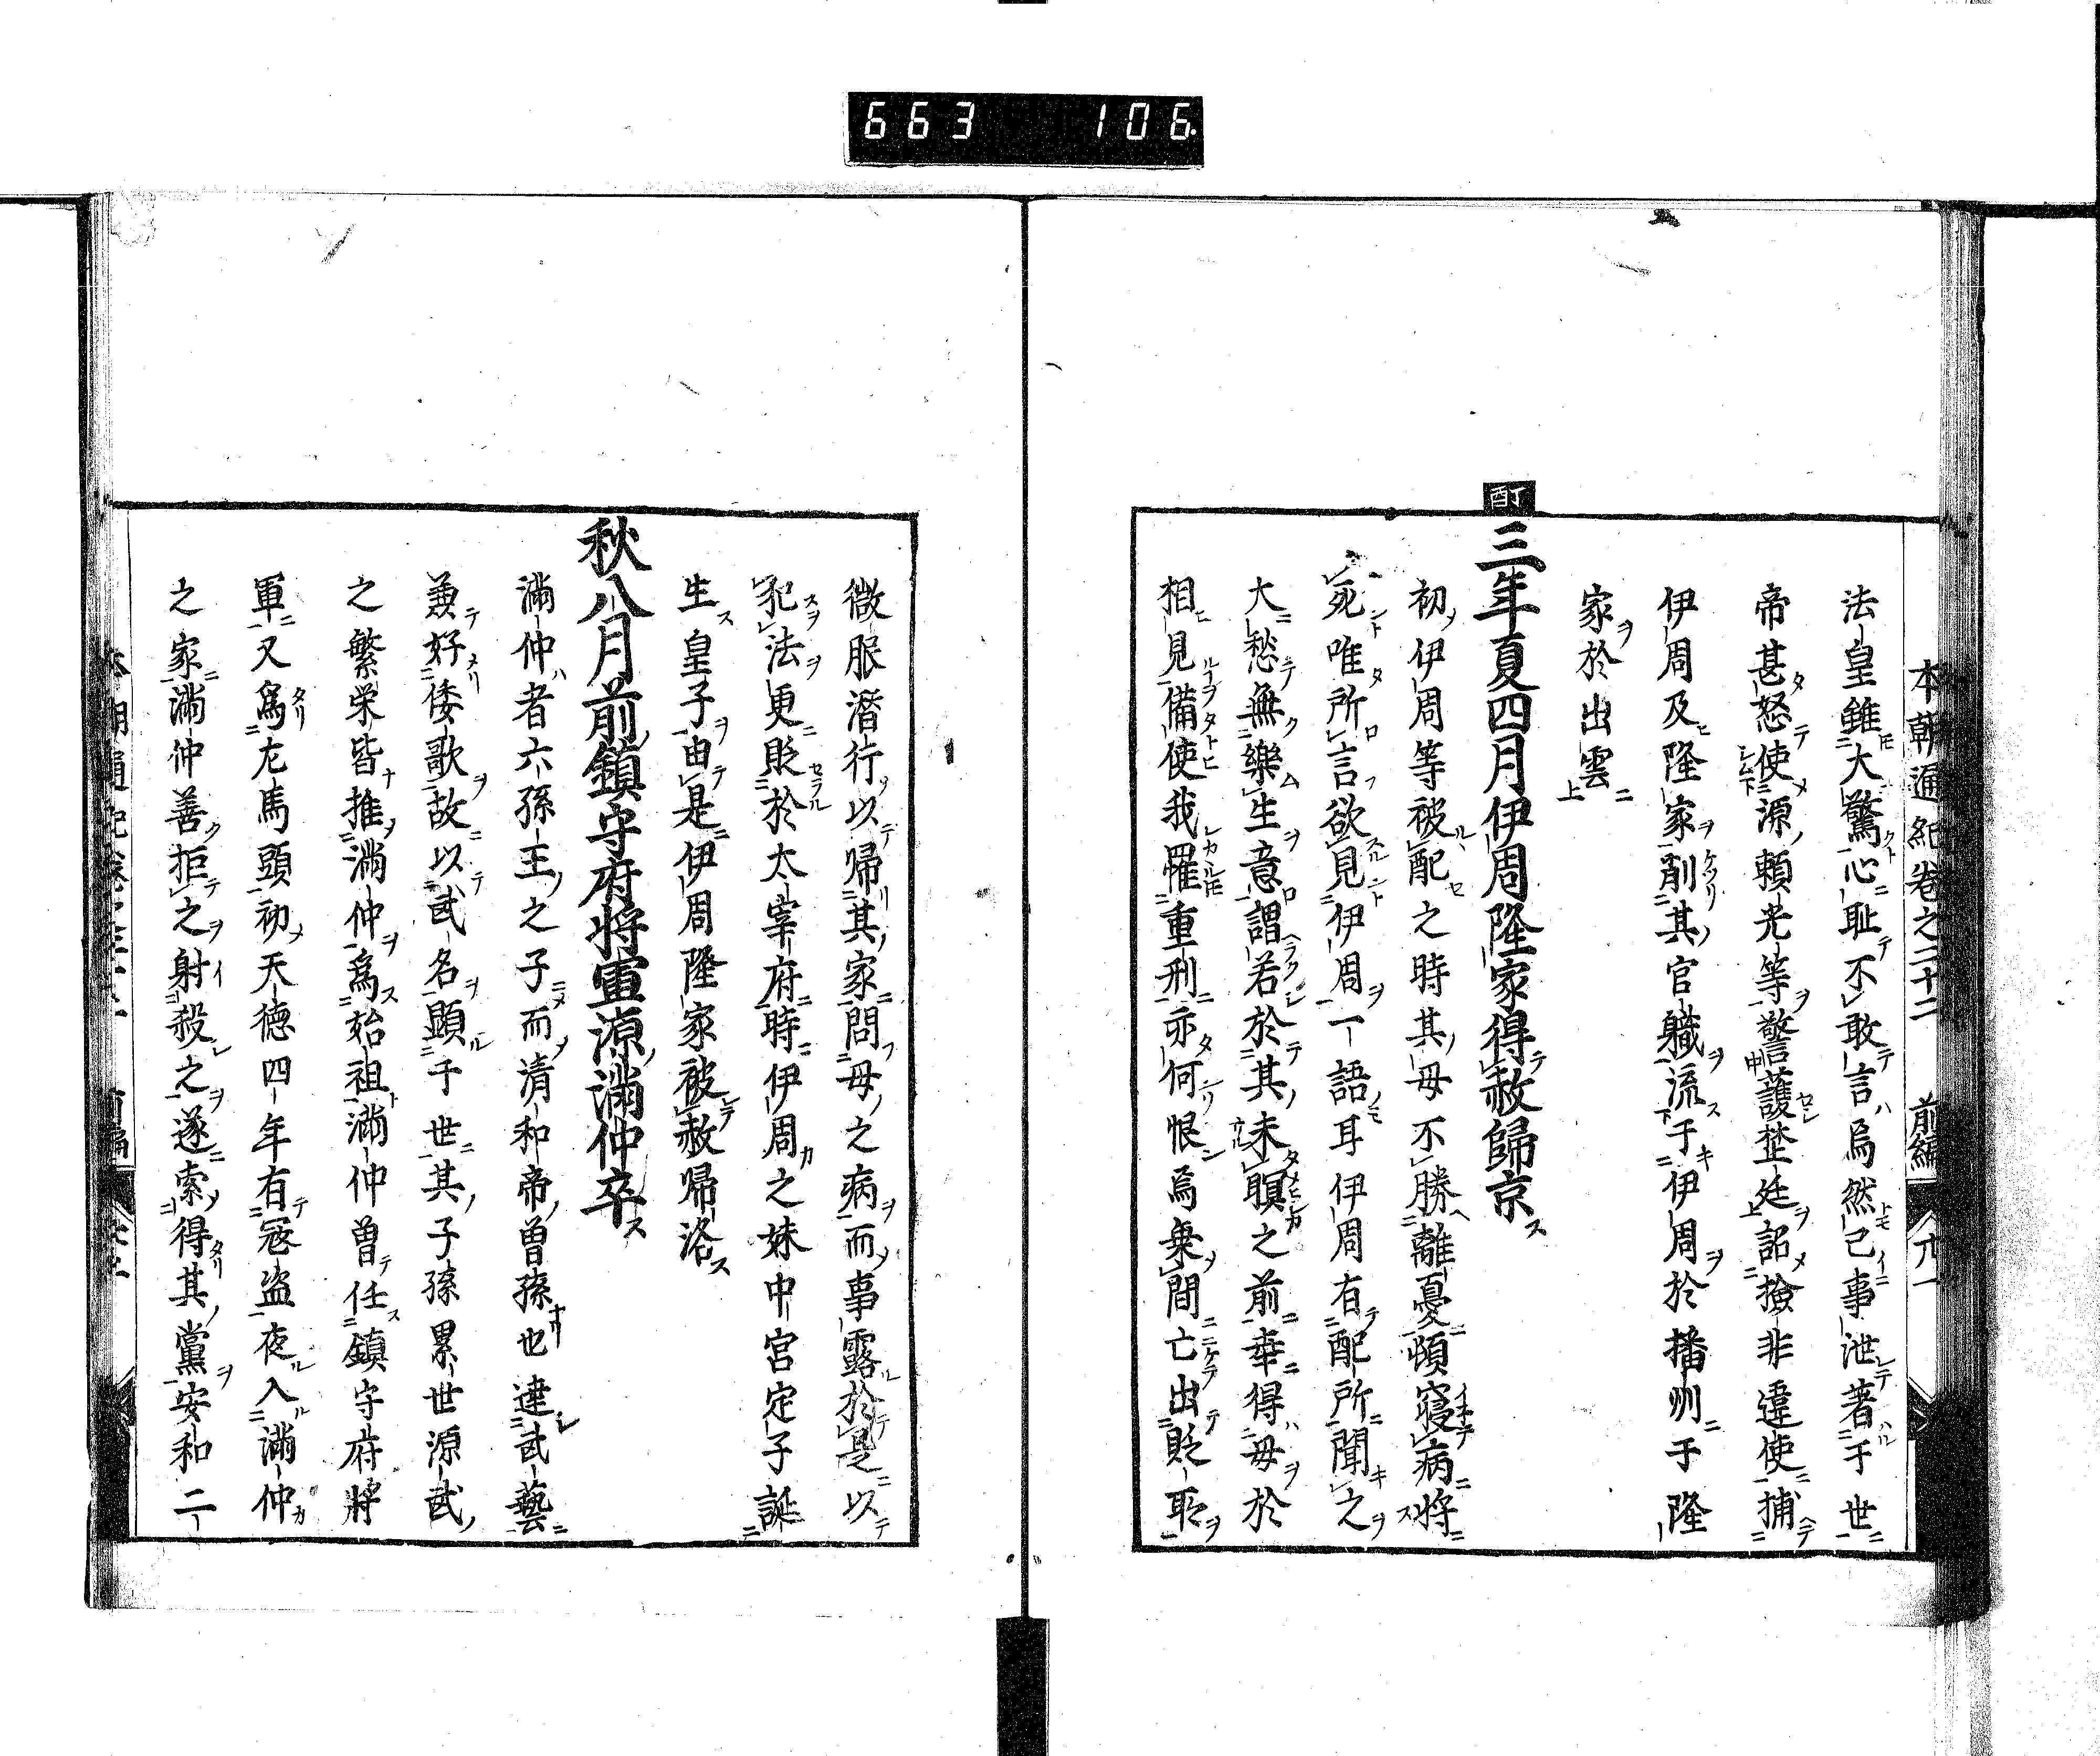 663 106
本朝通紀卷之二十二 前編 六一
法皇雖大驚心耻不敢言焉然已事泄著于世
帝甚怒使源賴光等警護埜廷詔撿非違使捕
伊周及隆家削其官軄流于伊周於播州于隆
家於出雲
丁酉
三年夏四月伊周隆家得赦歸京
初伊周等被配之時其母不勝離憂頓寢病將
死唯所言欲見伊周一語耳伊周有配所聞之
大愁無樂生意謂若於其未瞑之前幸得母於
相見備使我罹重刑亦何恨焉乗間亡出貶所
微服潛行以歸其家問母之病而事露於是以
犯法更貶於太宰府時伊周之妹中宮定子誕
生皇子由是伊周隆家被赦歸洛
秋八月前鎮守府將軍源滿仲卒
滿仲者六孫王之子而清和帝曾孫也達武藝
兼好倭歌故以武名顯于世其子孫累世源武
之繁栄皆推滿仲爲始祖滿仲曾任鎮守府將
軍又爲左馬頭初天德四年有寇盗夜入滿仲
之家滿仲善拒之射殺之遂索得其黨安和二